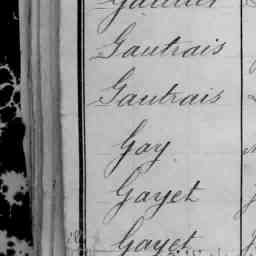 Gautrais
Gautrais
Gay
Gayet
Gayet